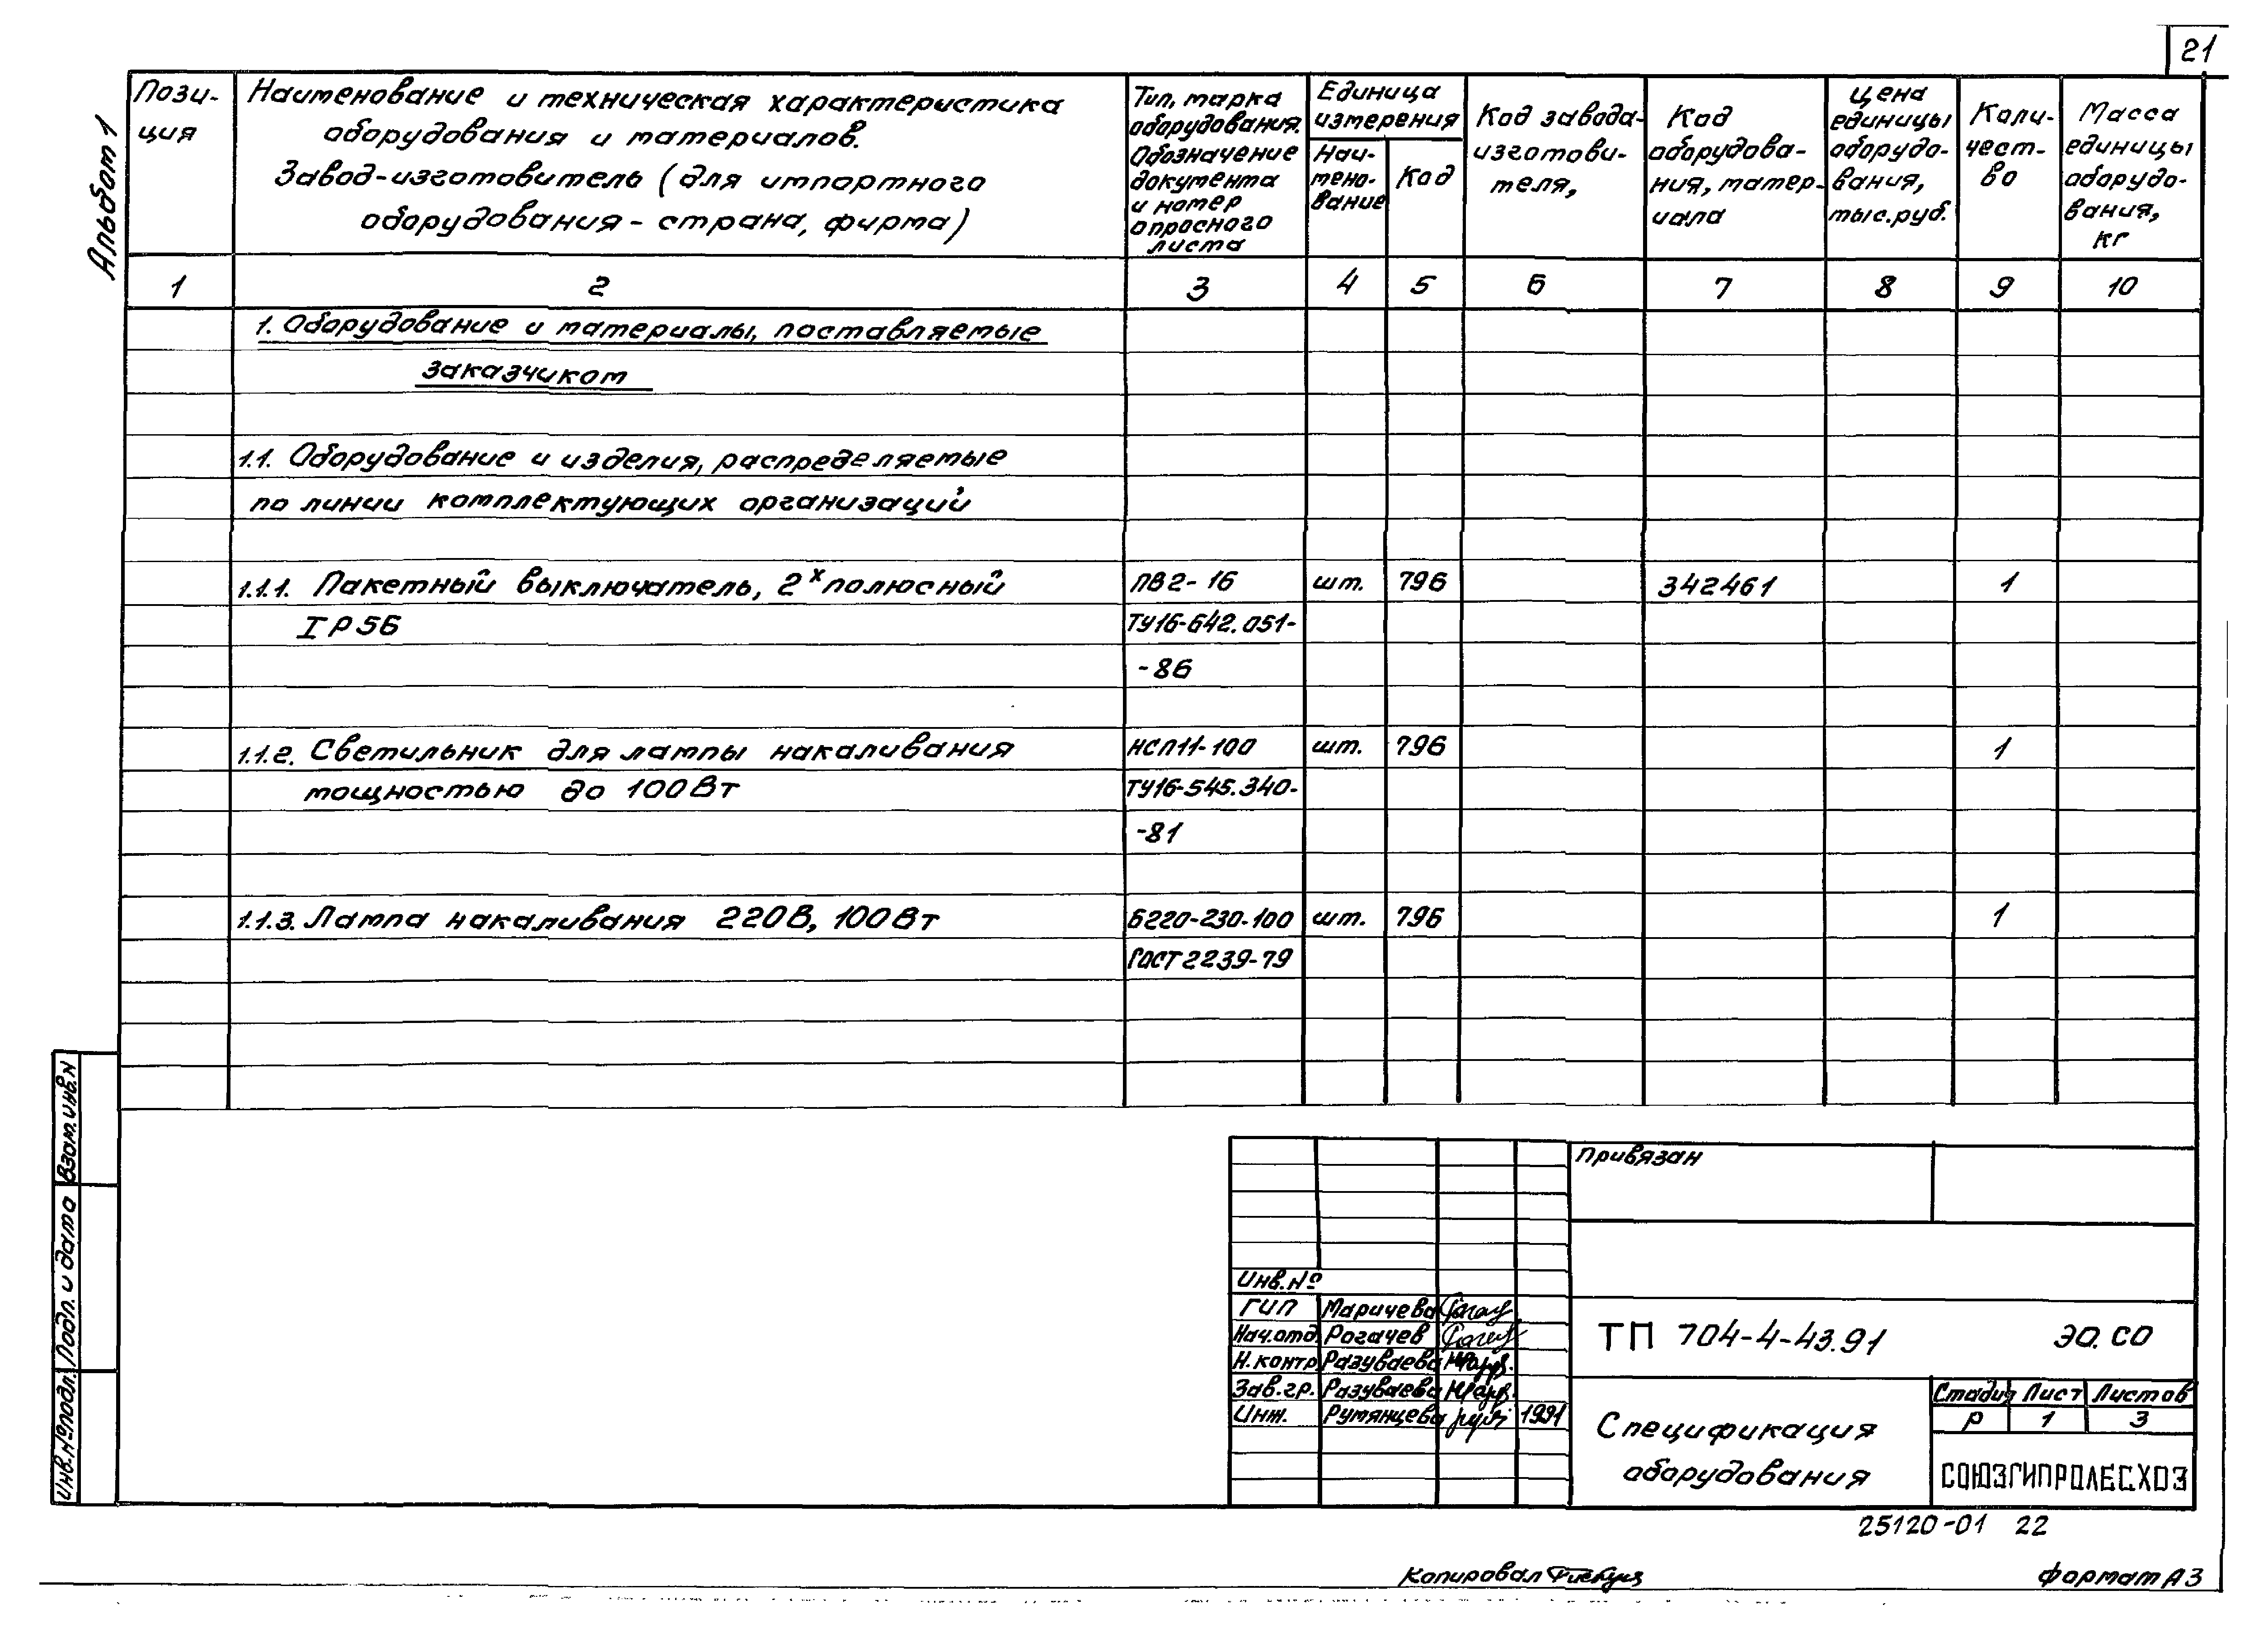 21
Альбом 1
Пози-
ция
Наименование и техническая характеристика
оборудования и материалов.
Завод-изготовитель (для импортного
оборудования - страна, фирма)
Тип, марка
оборудования.
Обозначение
документа
и номер
опросного
листа
Единица
измерения
Наи-
мено-
вание
Код
Код завода-
изготови-
теля,
Код
оборудова-
ния, матер-
иала
Цена
единицы
оборудо-
вания,
тыс.руб.
Коли-
чест-
во
Масса
единицы
оборудо-
вания,
кг
1 2 3 4 5 6 7 8 9 10
1. Оборудование и материалы, поставляемые
заказчиком
1.1. Оборудование и изделия, распределяемые
по линии комплектующих организаций
1.1.1. Пакетный выключатель, 2х полюсный ПВ2-16 шт. 796 342461 1
IP56 ТУ16-642.051-
-86
1.1.2. Светильник для лампы накаливания НСП11-100 шт. 796 1
мощностью до 100Вт ТУ16-545.340-
-81
1.1.3. Лампа накаливания 220В, 100Вт Б220-230-100 шт. 796 1
ГОСТ 2239-79
Взам. инв.N
Подп. и дата
Инв.N°подл.
Привязан
Инв.N°
ГИП Маричева
Нач.отд. Рогачев
Н.контр. Разуваева
Зав.гр. Разуваева
Инж. Румянцева 1991
ТП 704-4-43.91 ЭО.СО
Спецификация
оборудования
Стадия Лист Листов
Р 1 3
СОЮЗГИПРОЛЕСХОЗ
25120-01 22
Копировал
формат А3